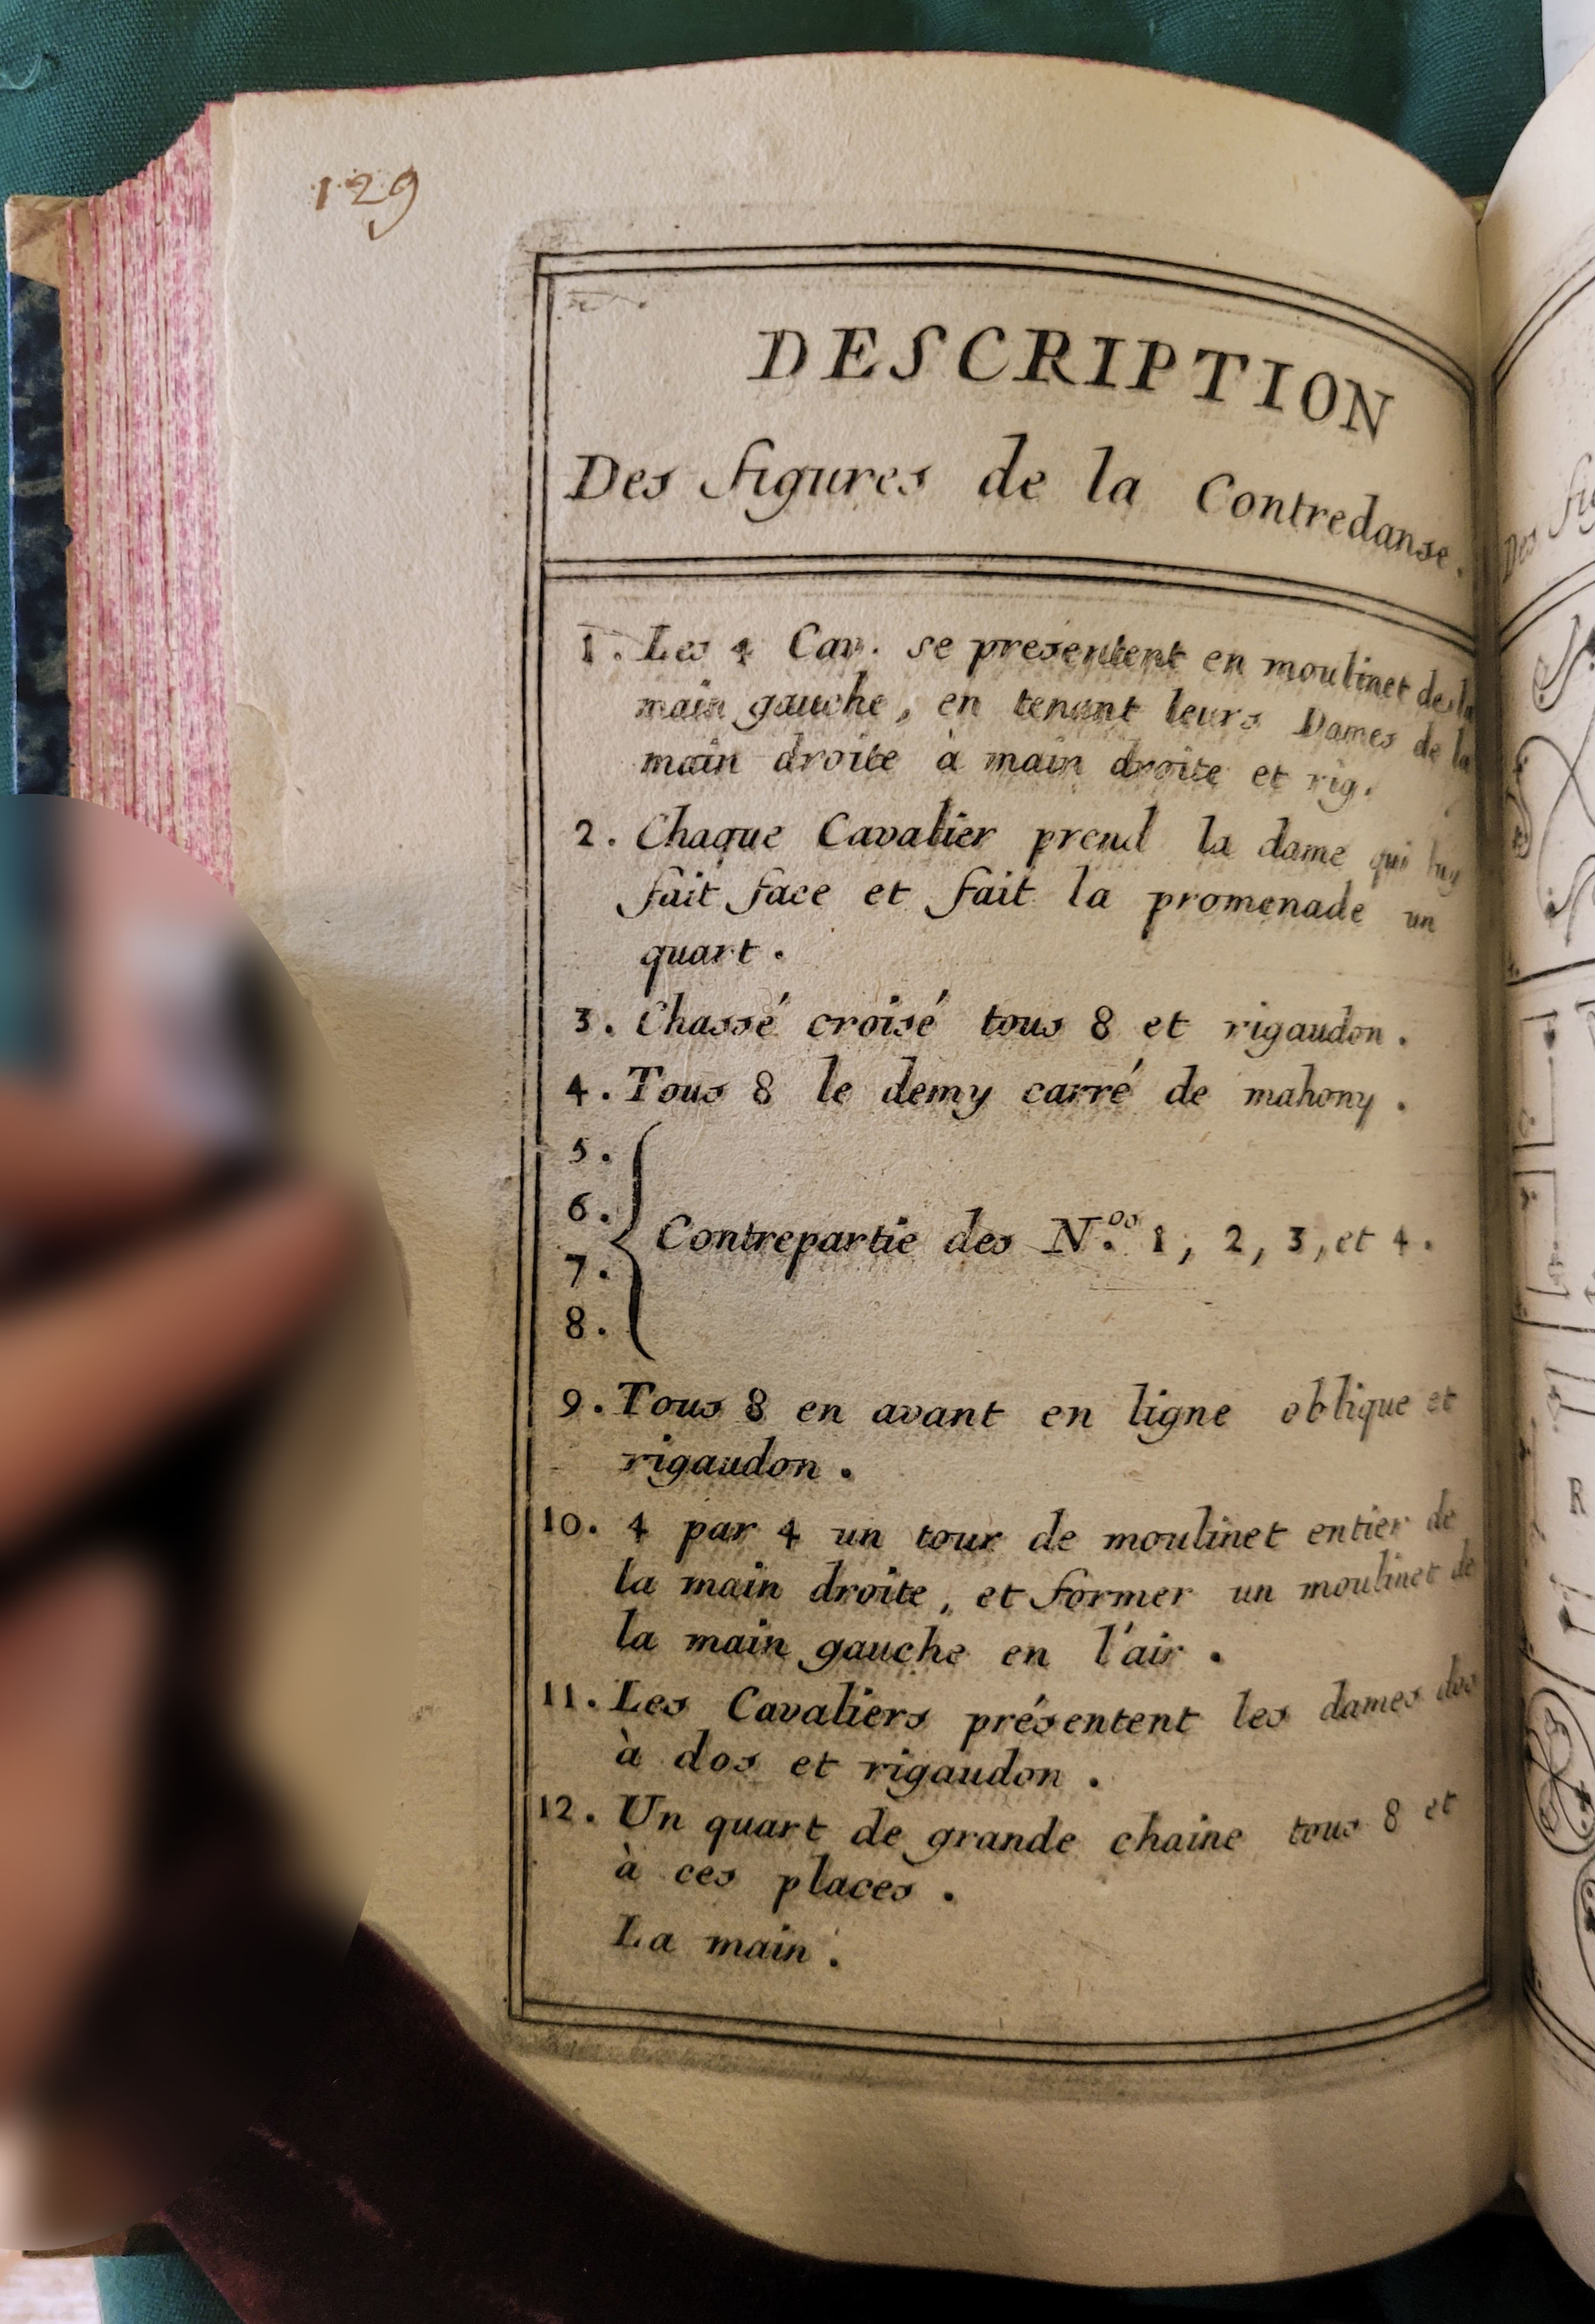 129
DESCRIPTION
Des figures de la Contredanse.
1. Les 4 Cav. se presentent en moulinet de la
main gauche, en tenant leurs Dames de la
main droite à main droite et rig.
2. Chaque Cavalier prend la dame qui luy
fait face et fait la promenade un
quart.
3. Chassé croisé tous 8 et rigaudon.
4. Tous 8 le demy carré de mahony.
5.
6.
Contrepartie des N.os 1, 2, 3, et 4.
7.
8.
9. Tous 8 en avant en ligne oblique et
rigaudon.
10. 4 par 4 un tour de moulinet entier de
la main droite, et former un moulinet de
la main gauche en l'air.
11. Les Cavaliers présentent les dames dos
à dos et rigaudon.
12. Un quart de grande chaine tous 8 et
à ces places.
La main.
Des fig
R